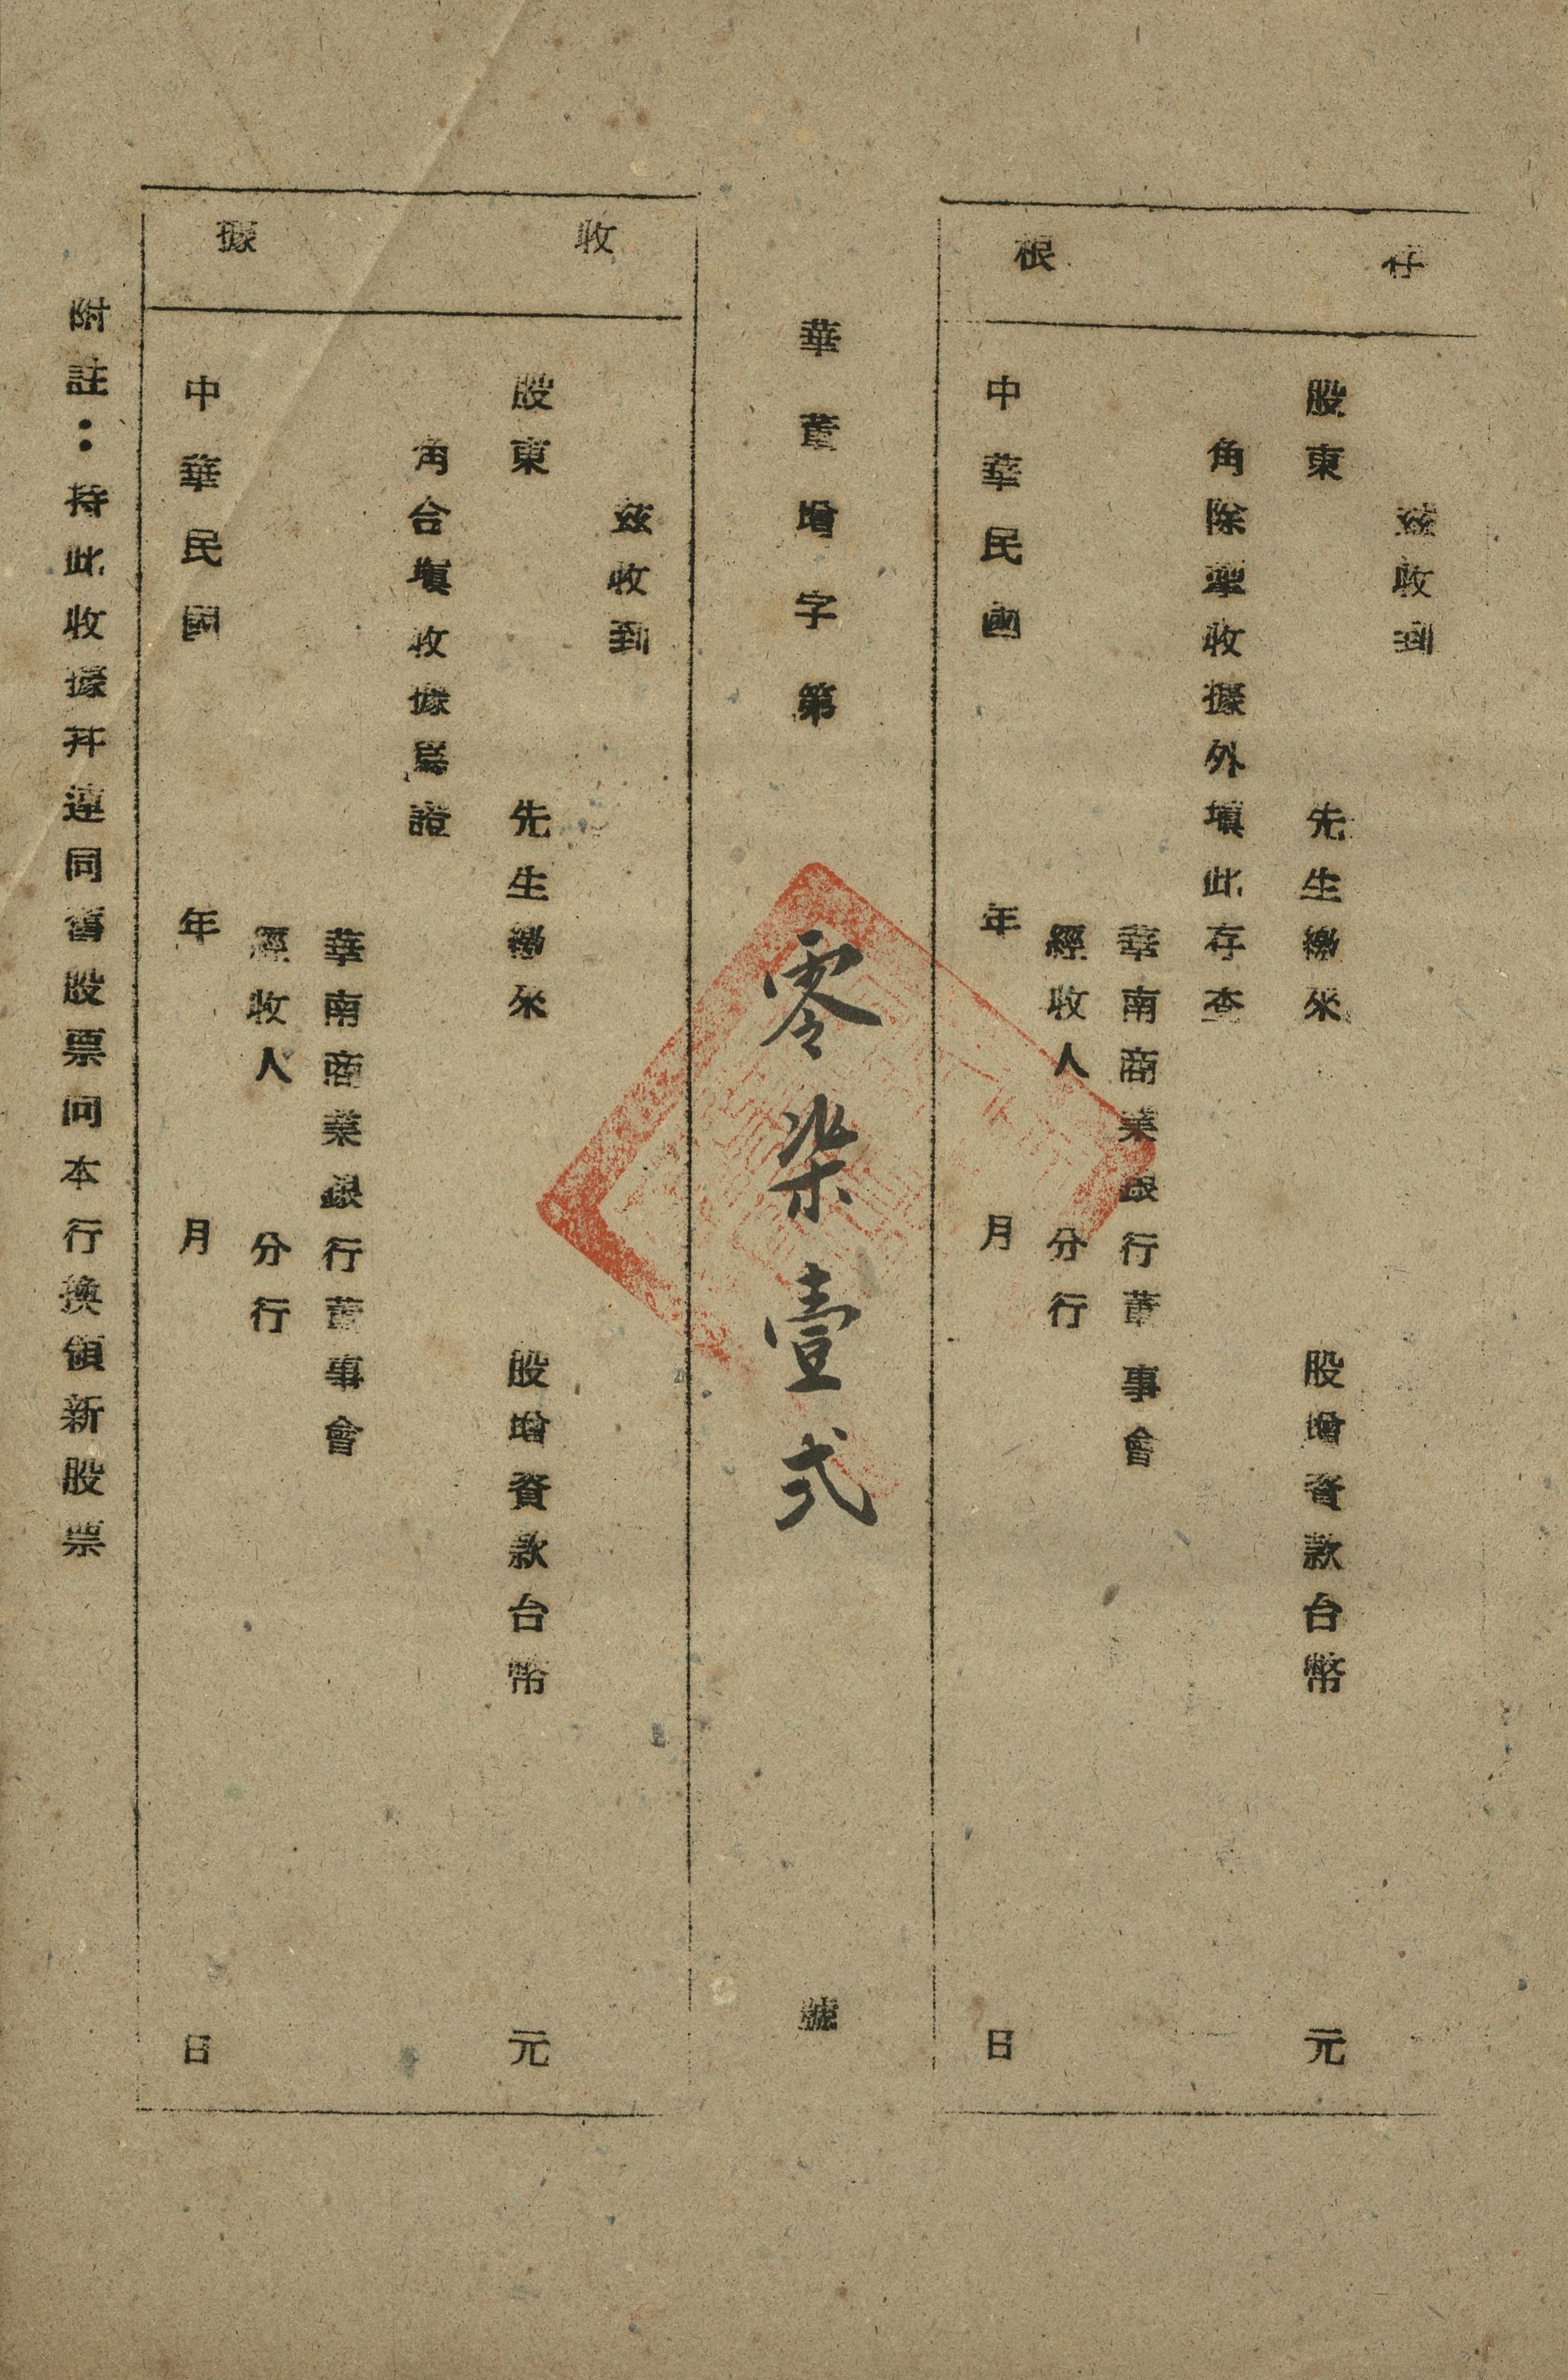 存根
茲收到
股東 先生繳來 股增資款台幣 元
角除掣收據外填此存查
華南商業銀行董事會
經收人 分行
中華民國 年 月 日
華董增字第 零柒壹弍 號
收據
茲收到
股東 先生繳來 股增資款台幣 元
角合填收據爲證
華南商業銀行董事會
經收人 分行
中華民國 年 月 日
附註：持此收據幷連同舊股票向本行換領新股票